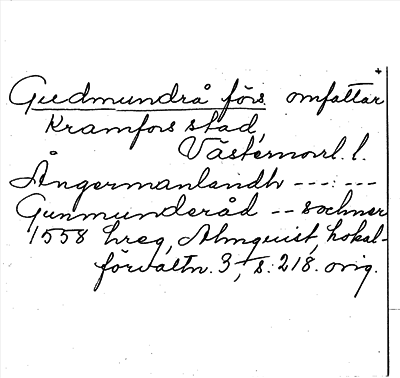 Gudmundrå förs. omfattar
Kramfors stad,
Västernorrl. l.
Ångermanlandh ---:---
Gunmunderåd -- sochner
1558 hreg, Almquist, Lokal-
förvaltn. 3, s. 218. orig.